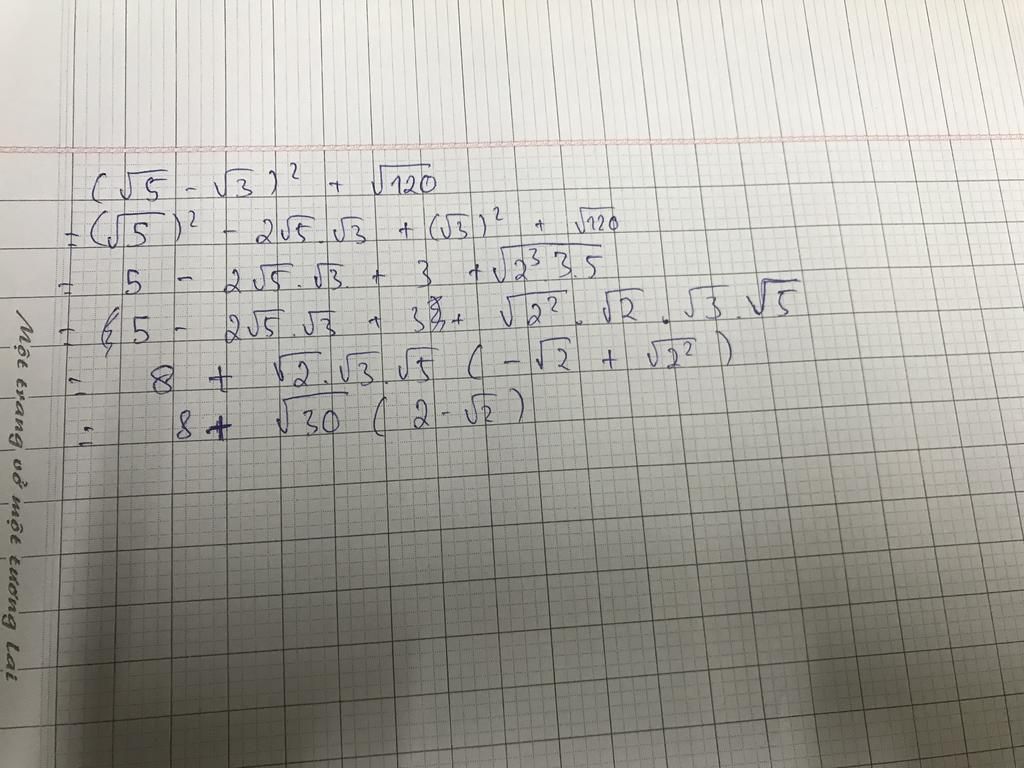 (√5 - √3)² + √120
= (√5)² - 2√5.√3 + (√3)² + √120
= 5 - 2√5.√3 + 3 + √2³.3.5
= 5 - 2√5.√3 + 3 + √2².√2.√3.√5
= 8 + √2.√3.√5 (-√2 + √2²)
= 8 + √30 (2 - √2)
Một trang vở một tương lai